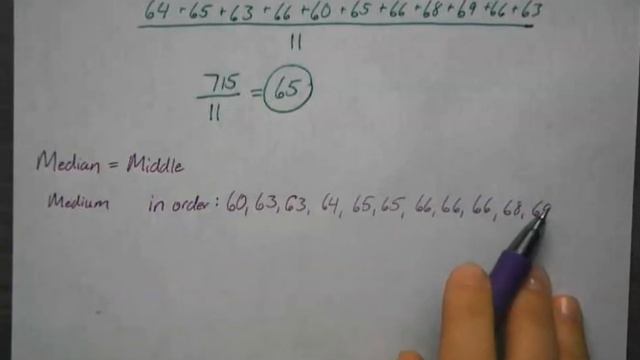 64 + 65 + 63 + 66 + 60 + 65 + 66 + 68 + 69 + 66 + 63
11
715
11
= 65
Median = Middle
Medium in order: 60, 63, 63, 64, 65, 65, 66, 66, 66, 68, 69